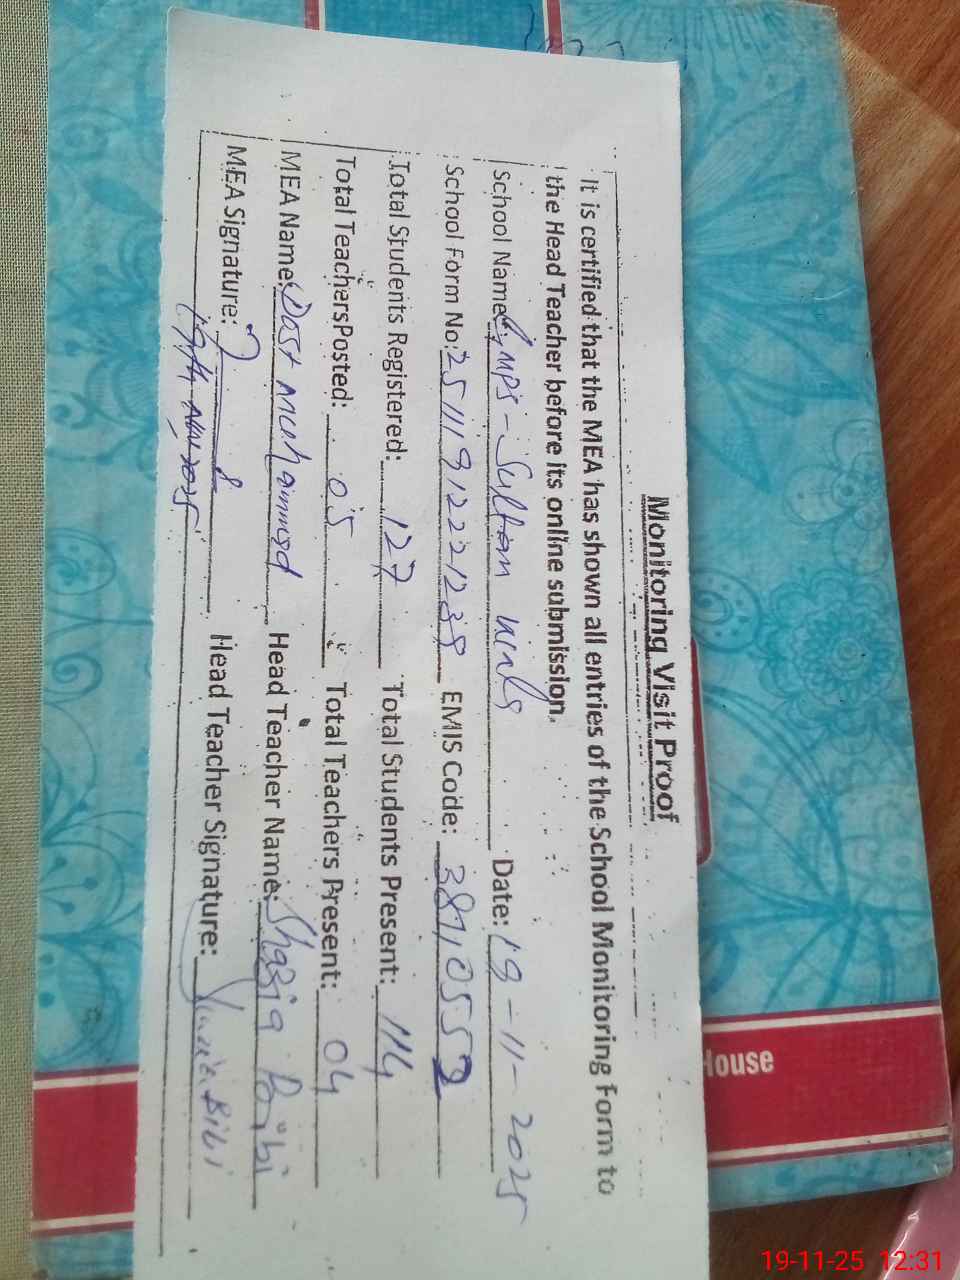 Monitoring Visit Proof
It is certified that the MEA has shown all entries of the School Monitoring Form to
the Head Teacher before its online submission.
School Name: Gmps - Sultan Date: 19-11-2025
School Form No: 2511191222-1238 EMIS Code: 38710552
Total Students Registered: 127 Total Students Present: 114
Total Teachers Posted: 05 Total Teachers Present: 04
MEA Name: Dost Muhammad Head Teacher Name: Shazia Bibi
MEA Signature: Head Teacher Signature: Shazia Bibi
19th Nov, 2025
House
19-11-25 12:31